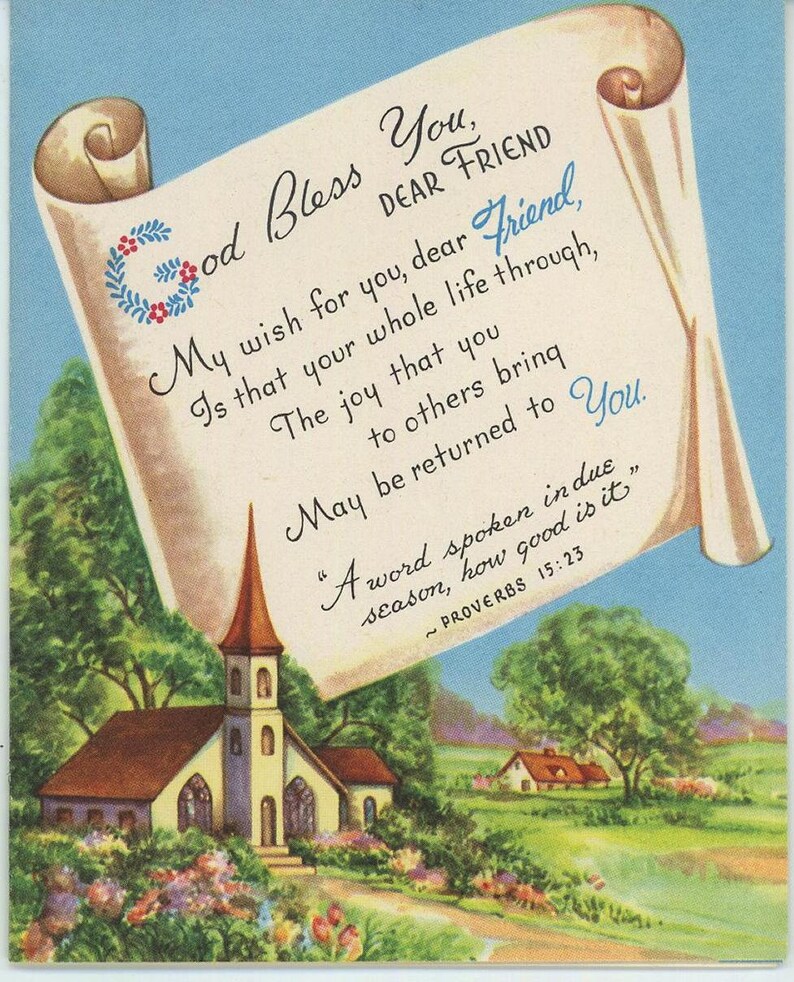 God Bless You,
DEAR FRIEND
My wish for you, dear Friend,
Is that your whole life through,
The joy that you
to others bring
May be returned to You.
"A word spoken in due
season, how good is it"
~ PROVERBS 15:23